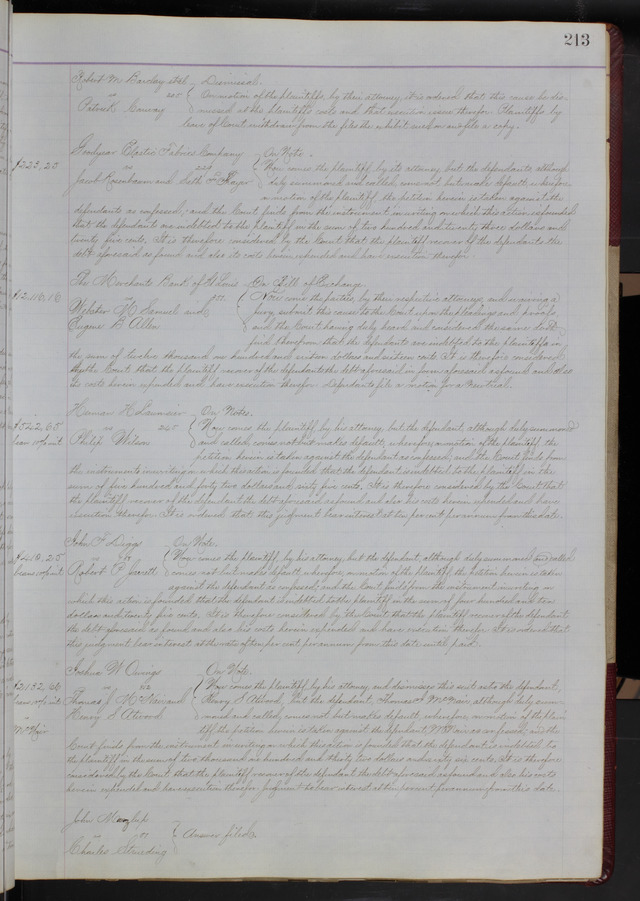 213
Robert M Barclay et al. Dismissal.
vs 205 On motion of the plaintiffs, by their attorney, it is ordered that this cause be dis-
Patrick Conway missed at the plaintiffs costs and that execution issue therefor. Plaintiffs by
leave of Court withdraw from the files the exhibit sued on and file a copy.
Goodyear Elastic Fabrics Company On Note.
$223,25 vs 224 Now comes the plaintiff by its attorney, but the defendants, although
Jacob Rosenbaum and Seth F. Thayer duly summoned and called, come not but make default; wherefore,
on motion of the plaintiff, the petition herein is taken against the
defendants as confessed, and the Court finds from the instrument in writing on which this action is founded
that the defendants are indebted to the plaintiff in the sum of two hundred and twenty three dollars and
twenty five cents. It is therefore considered by the Court that the plaintiff recover of the defendants the
debt aforesaid as found and also its costs herein expended and have execution therefor.
The Merchants Bank of St Louis On Bill of Exchange.
$12,116,16 vs Now come the parties, by their respective attorneys, and waiving a
Webster M Samuel and jury submit this cause to the Court upon the pleadings and proofs,
Eugene B. Allen and the Court having duly heard and considered the same doth
find therefrom that the defendants are indebted to the plaintiffs in
the sum of twelve thousand one hundred and sixteen dollars and sixteen cents. It is therefore considered
by the Court that the plaintiff recover of the defendants the debt aforesaid in form aforesaid as found and also
its costs herein expended and have execution therefor. Defendants file a motion for a new trial.
Herman H. On Notes.
$542,65 vs 245 Now comes the plaintiff by his attorney, but the defendant, although duly summoned
bears 10% int. Philip Wilson and called, comes not but makes default; wherefore, on motion of the plaintiff, the
petition herein is taken against the defendant as confessed, and the Court finds from
the instruments in writing on which this action is founded that the defendant is indebted to the plaintiff in the
sum of five hundred and forty two dollars and sixty five cents. It is therefore considered by the Court that
the plaintiff recover of the defendant the debt aforesaid as found and also his costs herein expended and have
execution therefor. It is ordered that this judgment bear interest at ten per cent per annum from this date.
John F Diggs On Note.
$410,25 vs Now comes the plaintiff by his attorney, but the defendant, although duly summoned and called
bears 10% int. Robert P. Jarrett comes not but makes default; wherefore, on motion of the plaintiff, the petition herein is taken
against the defendant as confessed; and the Court finds from the instrument in writing on
which this action is founded that the defendant is indebted to the plaintiff in the sum of four hundred and ten
dollars and twenty five cents. It is therefore considered by the Court that the plaintiff recover of the defendant
the debt aforesaid as found and also his costs herein expended and have execution therefor. It is ordered that
this judgment bear interest at the rate of ten per cent per annum from this date until paid.
Joshua W Owings On Note.
$2132,66 vs 212 Now comes the plaintiff by his attorney, and dismisses this suit as to the defendant,
bears 10% int. Thomas J McNair and Henry S Atwood, but the defendant, Thomas J McNair, although duly sum-
McNair Henry S Atwood moned and called, comes not but makes default, wherefore, on motion of the plain
tiff, the petition herein is taken against the defendant McNair as confessed, and the
Court finds from the instrument in writing on which this action is founded that the defendant is indebted to
the plaintiff in the sum of two thousand one hundred and thirty two dollars and sixty six cents. It is therefore
considered by the Court that the plaintiff recover of the defendant the debt aforesaid as found and also his costs
herein expended and have execution therefor. Judgment to bear interest at ten per cent per annum from this date.
John
vs Answer filed.
Charles Stuending